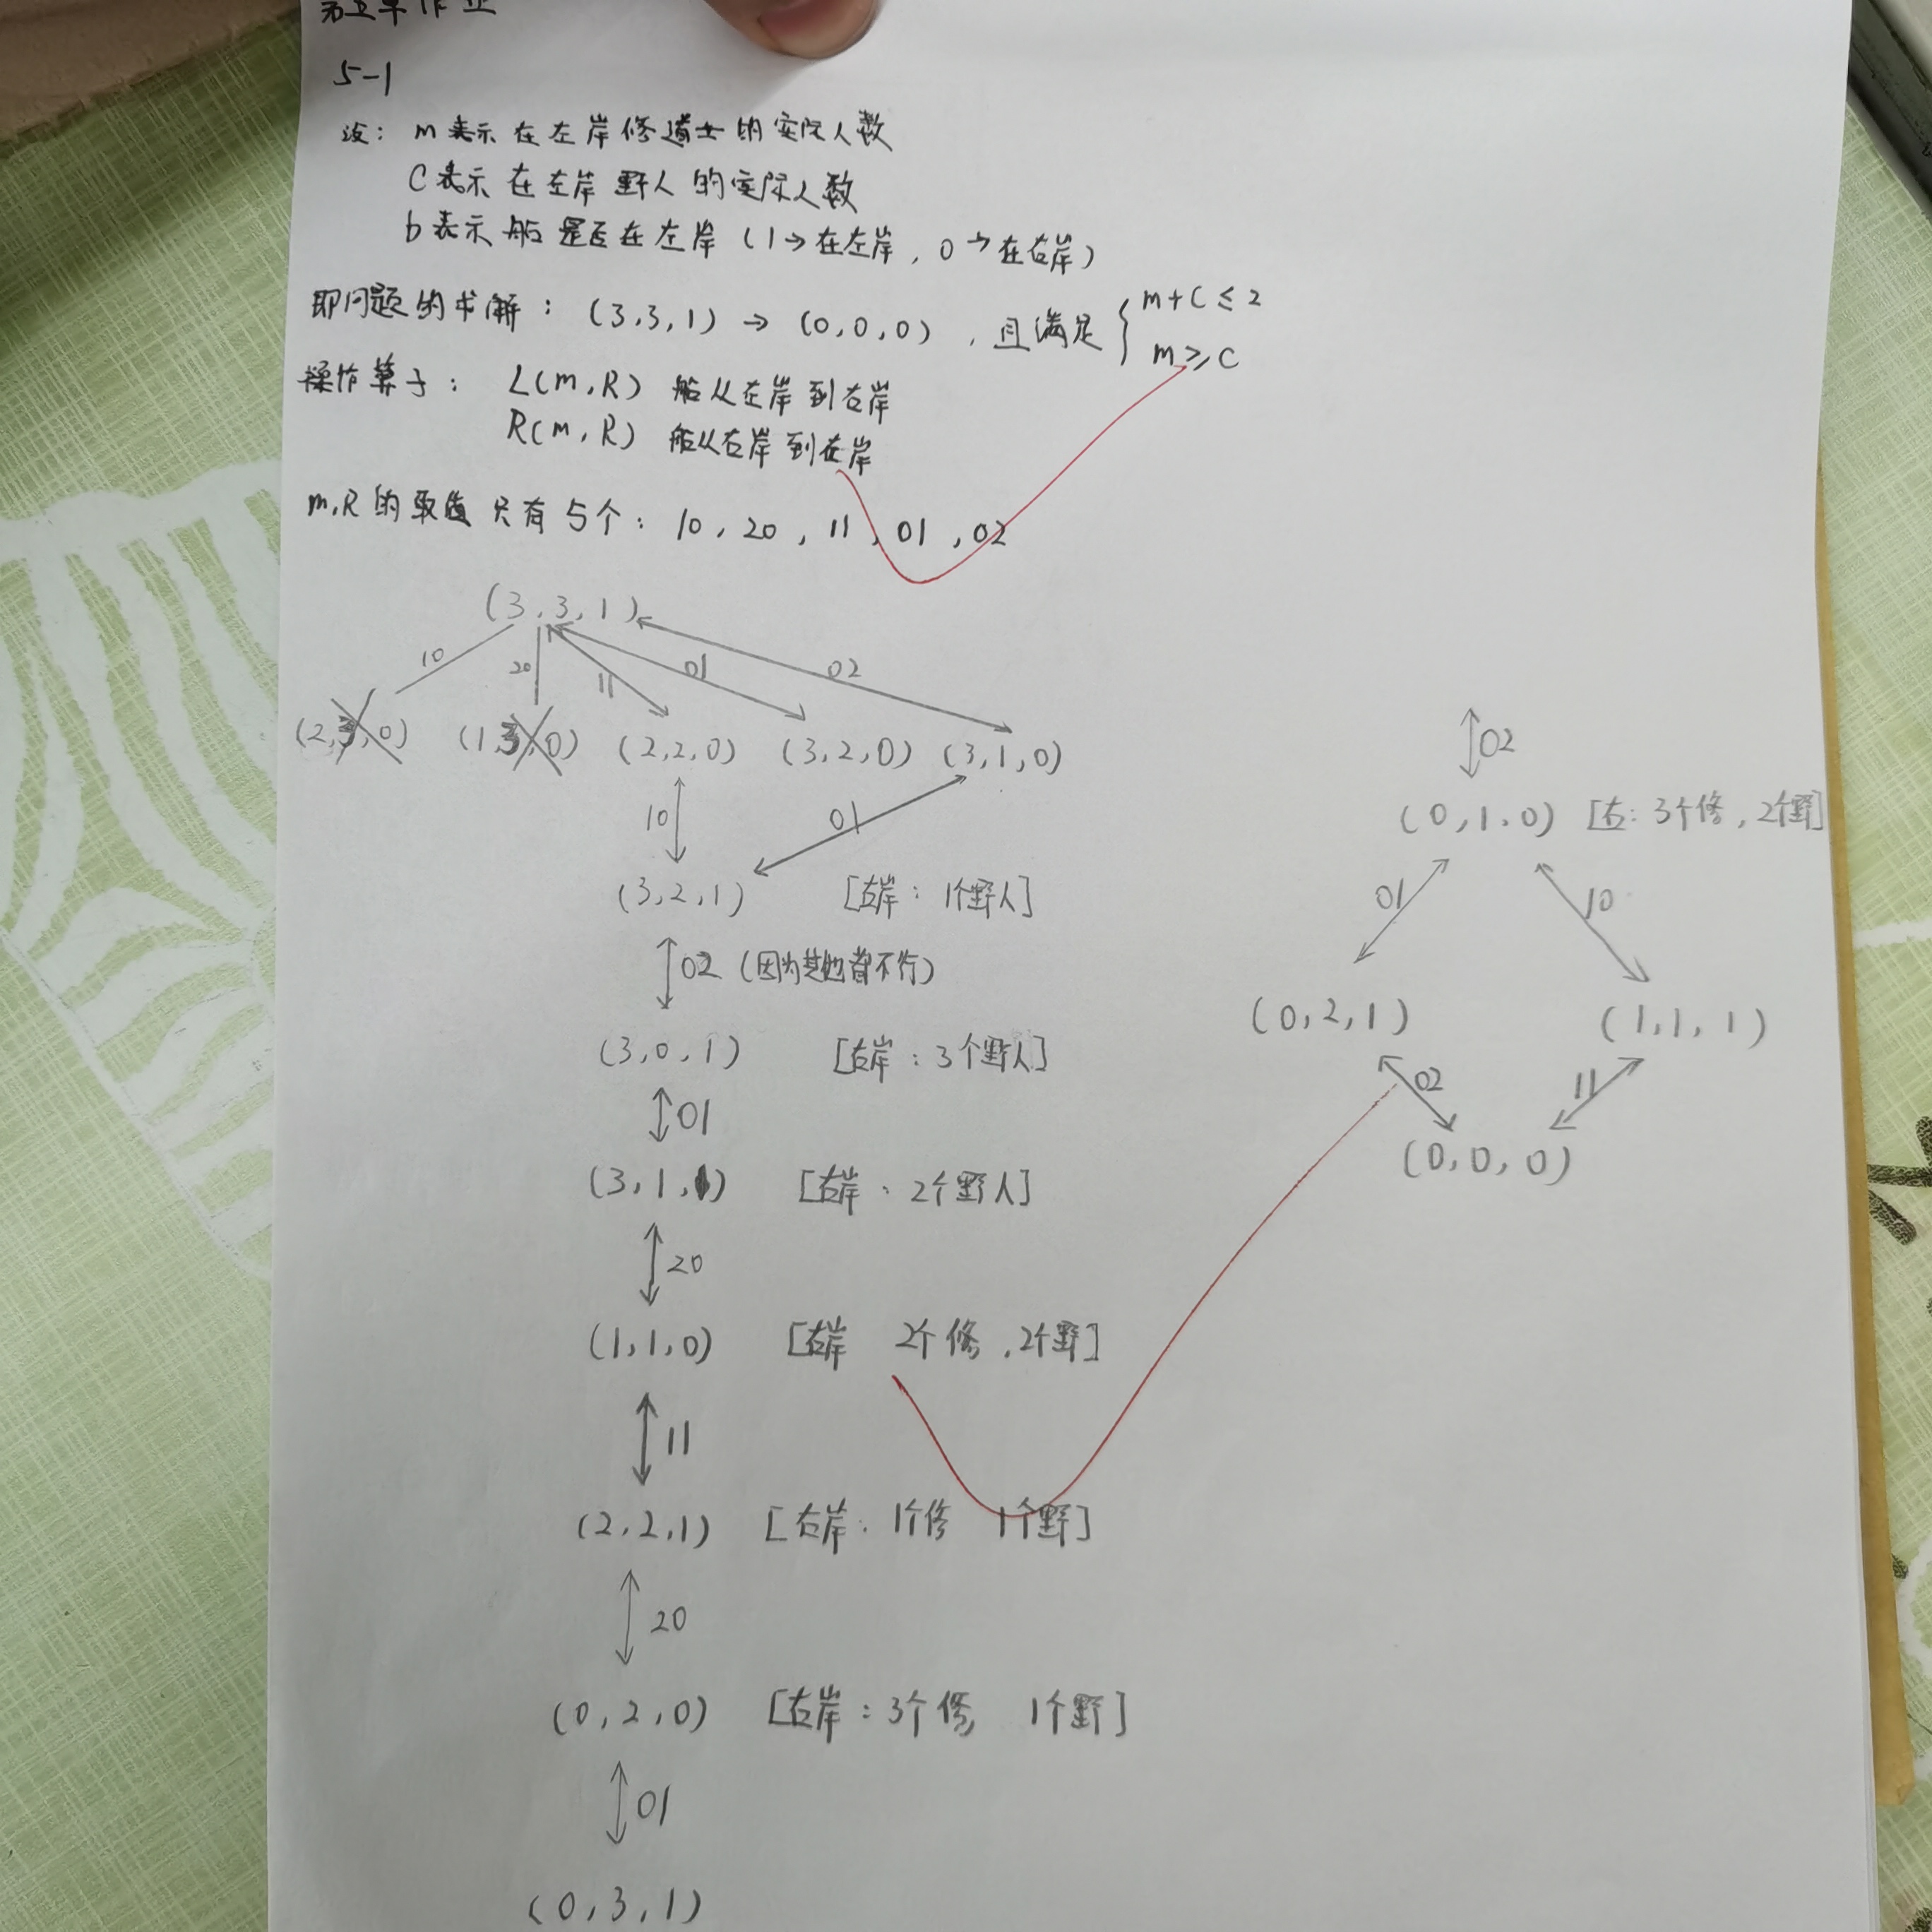 第五章作业
5-1
设: m表示在左岸修道士的实际人数
C表示在左岸野人的实际人数
b表示船是否在左岸 (1→在左岸, 0→在右岸)
即问题的求解: (3,3,1) → (0,0,0), 且满足 { m+C≤2
m≥C
操作算子: L(m,R) 船从左岸到右岸
R(m,R) 船从右岸到左岸
m,R的取值只有5个: 10, 20, 11, 01, 02
(3,3,1)
10 20 11 01 02
(2,3,0) (1,3,0) (2,2,0) (3,2,0) (3,1,0)
10 01
(3,2,1) [右岸: 1个野人]
02 (因为其他都不行)
(3,0,1) [右岸: 3个野人]
01
(3,1,1) [右岸: 2个野人]
20
(1,1,0) [右岸 2个修, 2个野]
11
(2,2,1) [右岸: 1个修 1个野]
20
(0,2,0) [右岸: 3个修 1个野]
01
(0,3,1)
02
(0,1,0) [右: 3个修, 2个野]
01 10
(0,2,1) (1,1,1)
02 11
(0,0,0)